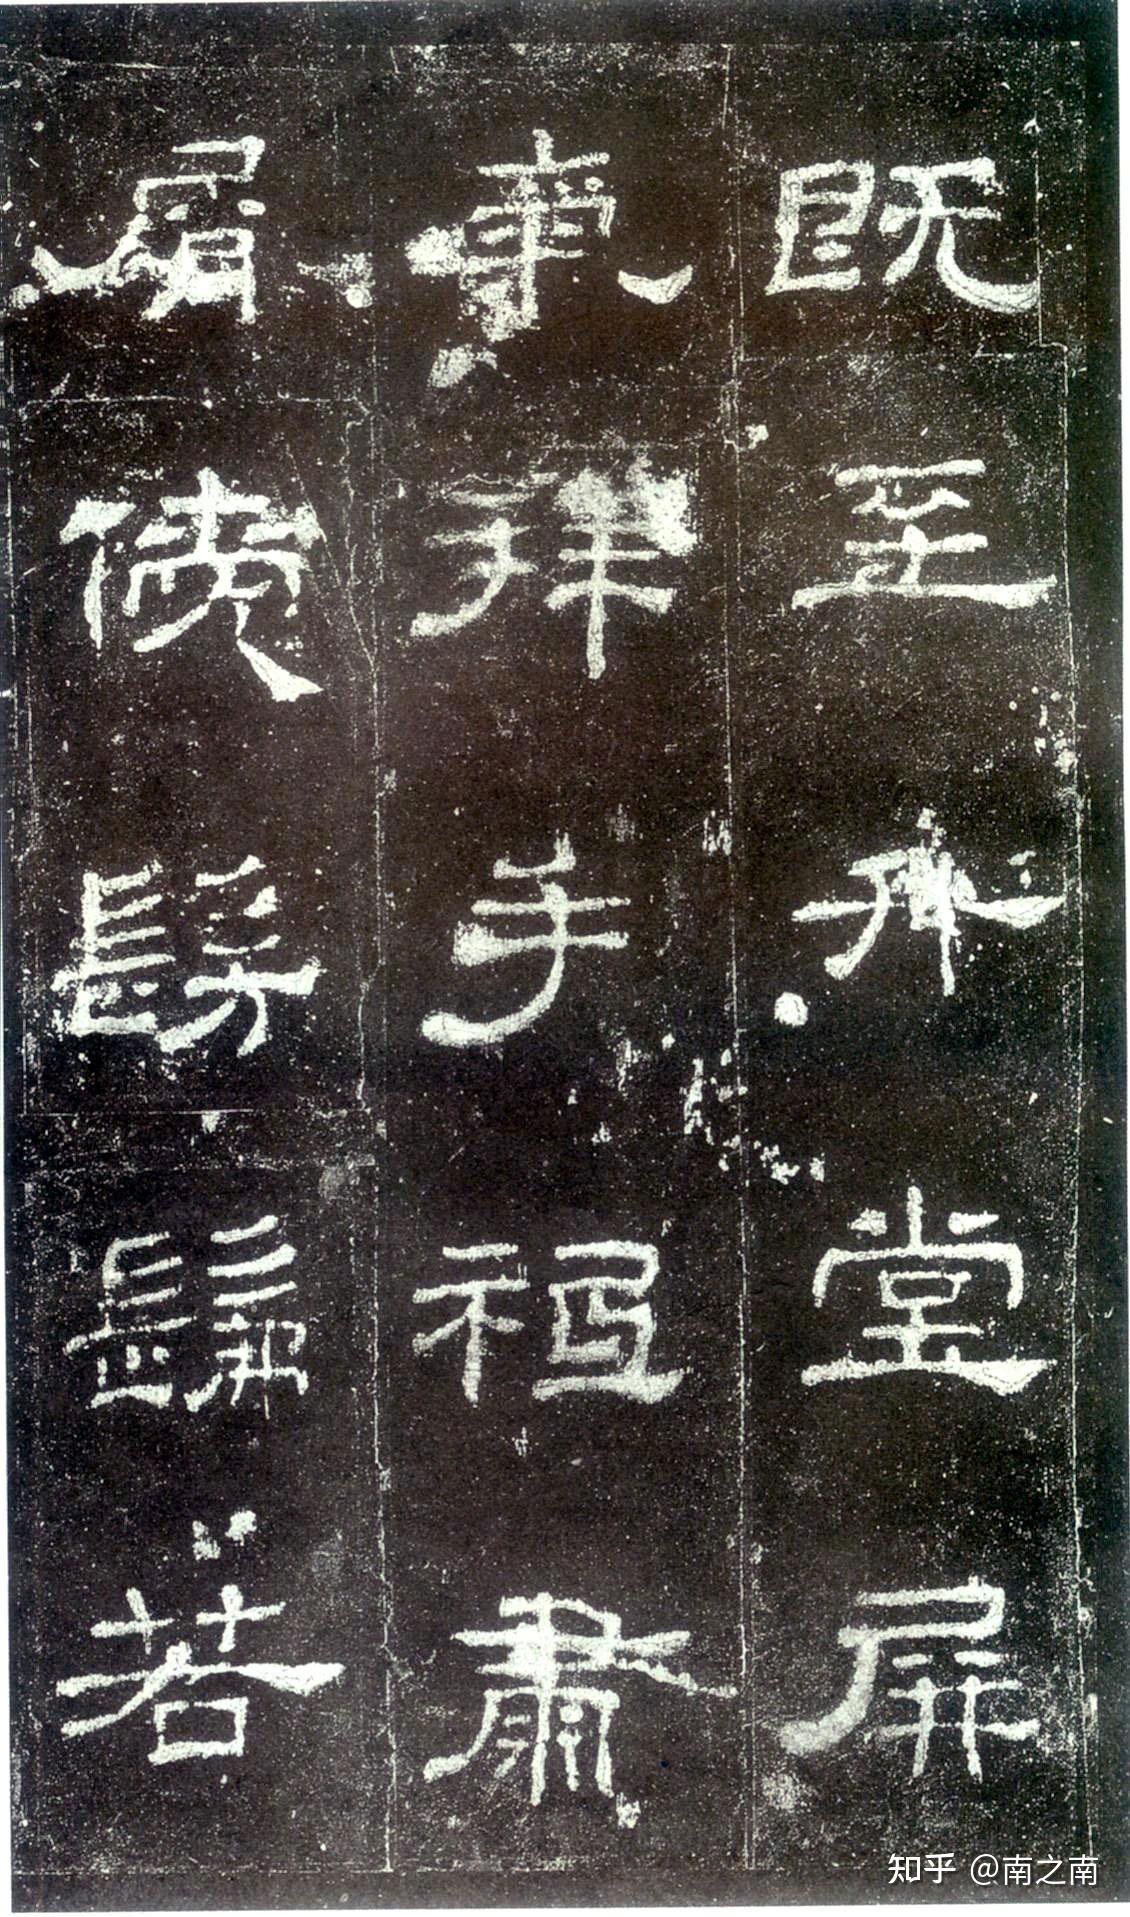 既至升堂屏
拜手祗肅
屑僾髣髴若
知乎 @南之南